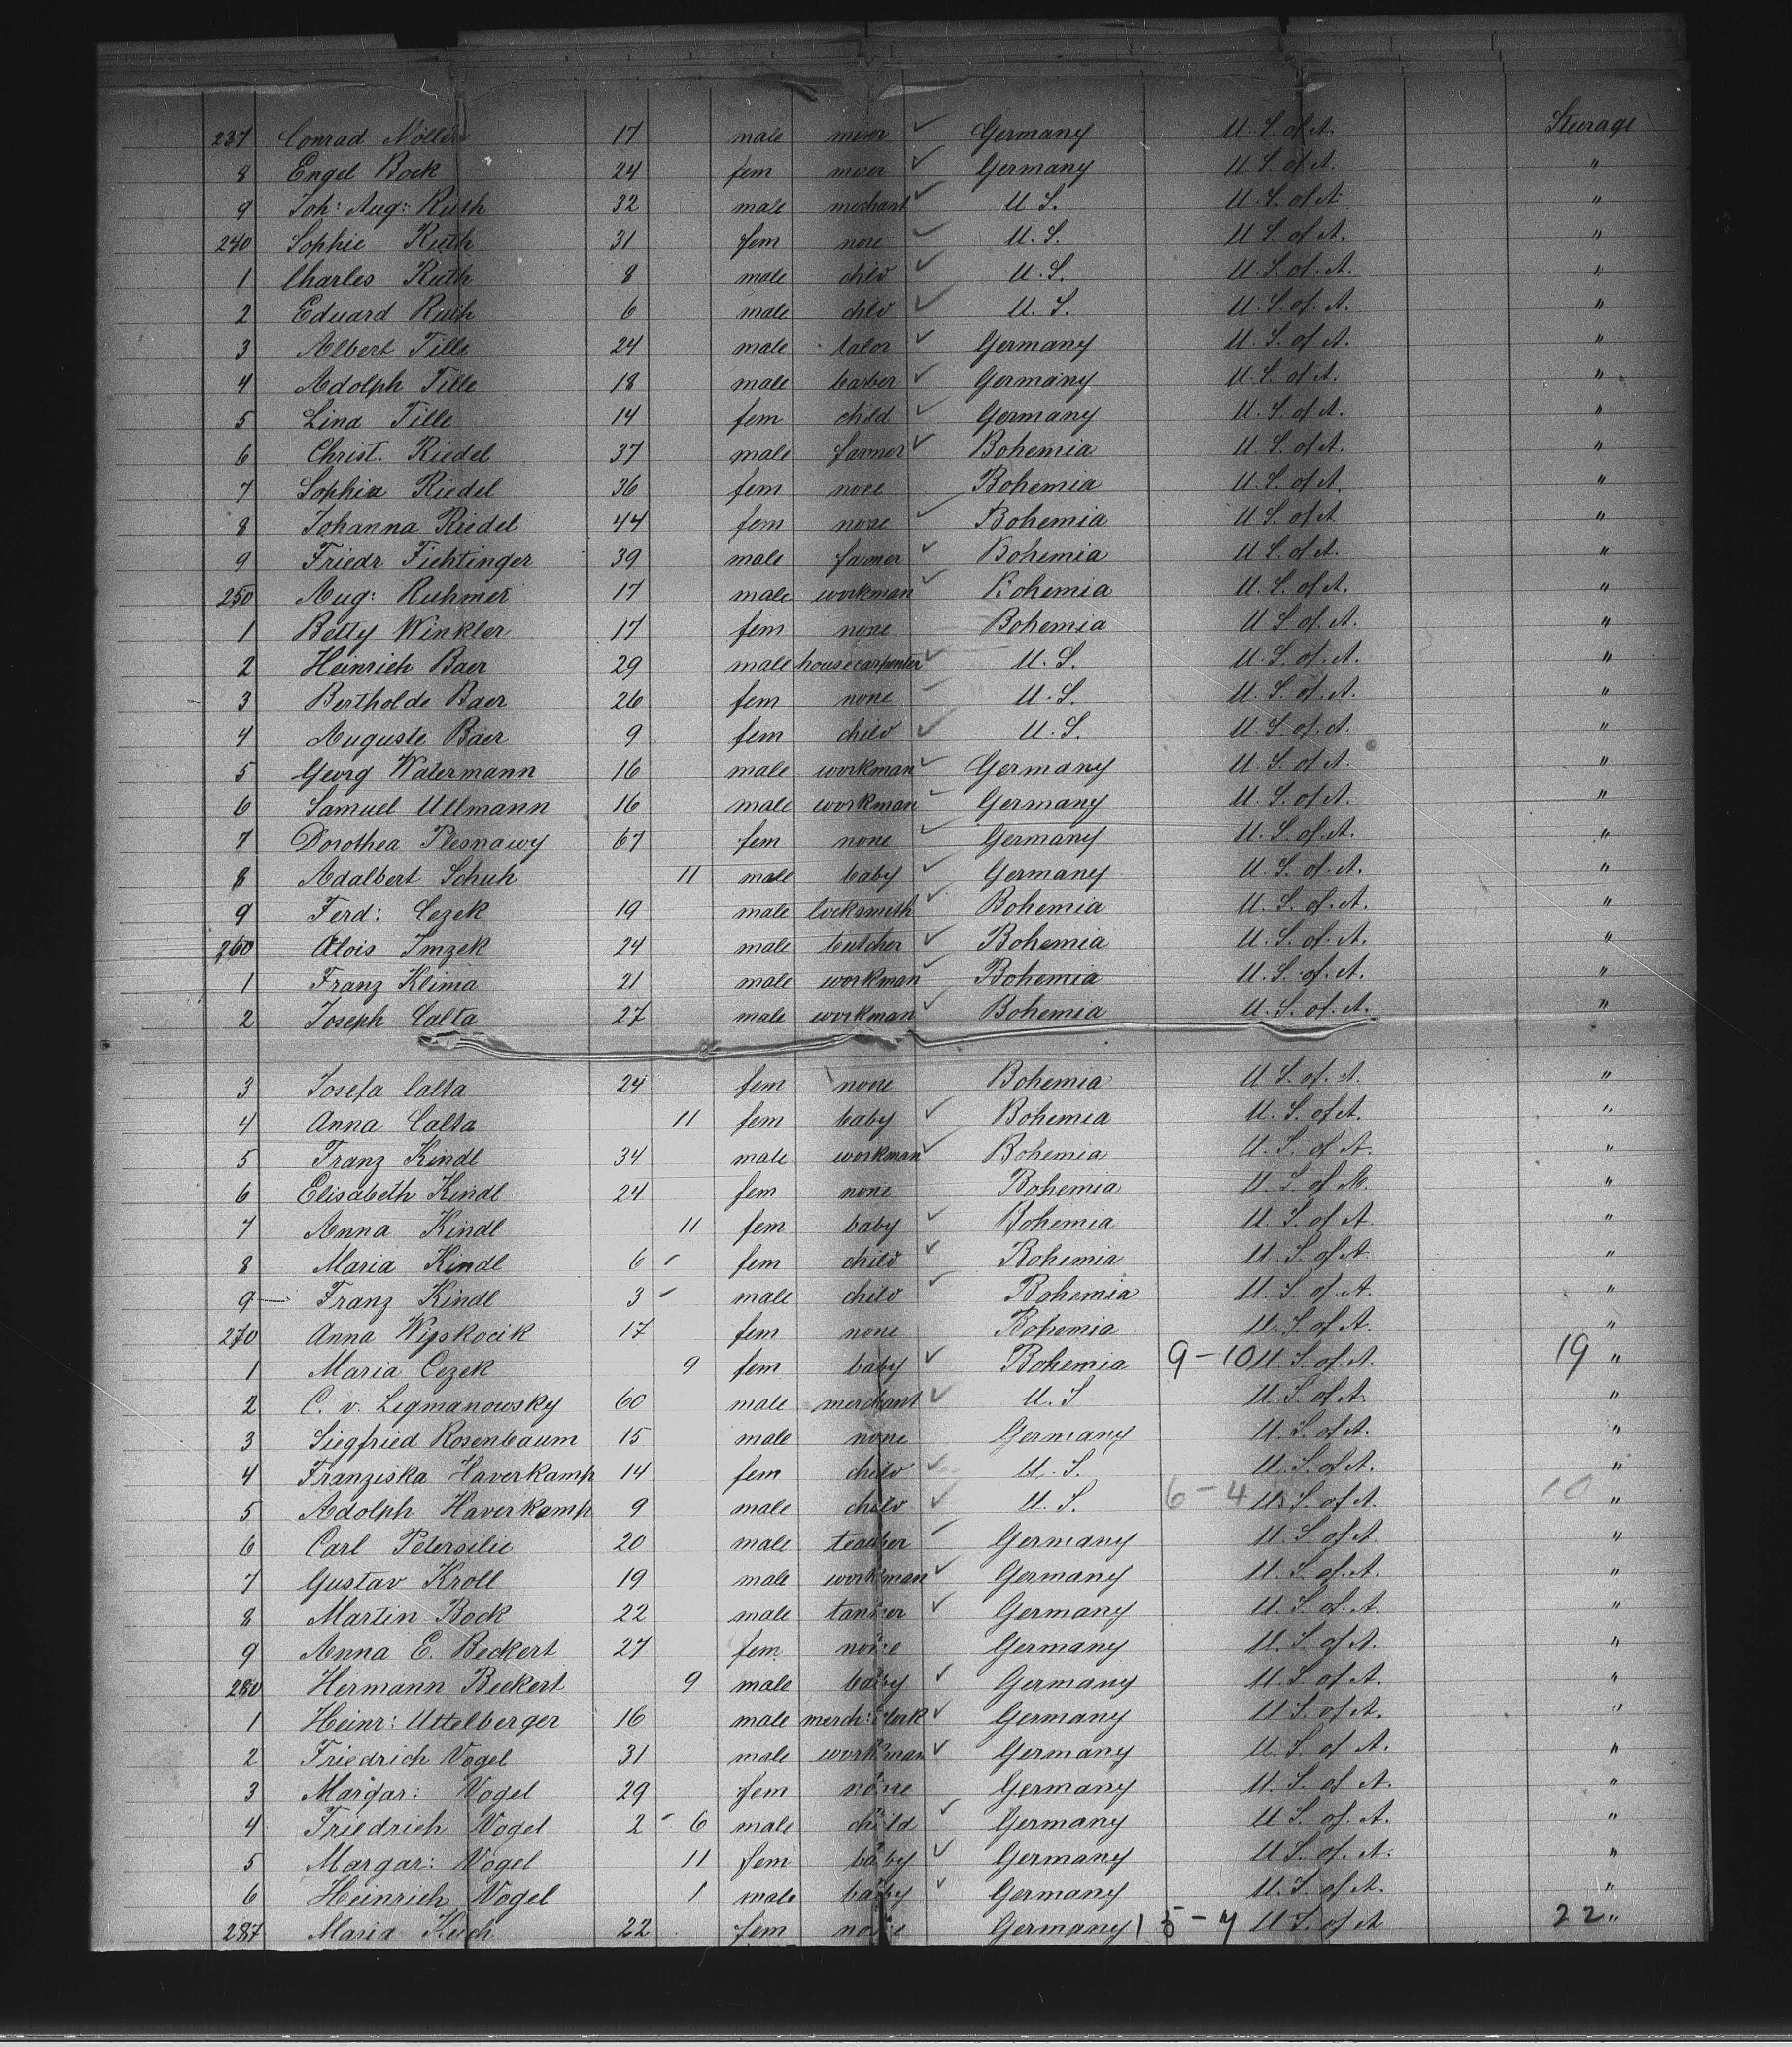 237 Conrad Möller 17 male miner Germany U. S. of A. Steerage
8 Engel Bock 24 fem Germany U. S. of A. "
9 Joh: Aug: Ruth 32 male merchant U. S. U. S. of A. "
240 Sophie Ruth 31 fem none U. S. U. S. of A. "
1 Charles Ruth 8 male child U. S. U. S. of A. "
2 Eduard Ruth 6 male child U. S. U. S. of A. "
3 Albert Tille 24 male talor Germany U. S. of A. "
4 Adolph Tille 18 male barber Germany U. S. of A. "
5 Lina Tille 14 fem child Germany U. S. of A. "
6 Christ. Riedel 37 male farmer Bohemia U. S. of A. "
7 Sophia Riedel 36 fem none Bohemia U. S. of A. "
8 Johanna Riedel 44 fem none Bohemia U. S. of A "
9 Friedr Fichtinger 39 male farmer Bohemia U. S. of A. "
250 Aug: Ruhmer 17 male workman Bohemia U. S. of A. "
1 Betty Winkler 17 fem none Bohemia U. S. of A. "
2 Heinrich Baer 29 male housecarpenter U. S. U. S. of A. "
3 Bertholde Baer 26 fem none U. S. U. S. of A. "
4 Auguste Baer 9 fem child U. S. U. S. of A. "
5 Georg Watermann 16 male workman Germany U. S. of A. "
6 Samuel Ullmann 16 male workman Germany U. S. of A. "
7 Dorothea Plesnawy 67 fem none Germany U. S. of A. "
8 Adalbert Schuh 11 male baby Germany U. S. of A. "
9 Ferd: Cezek 19 male locksmith Bohemia U. S. of A. "
260 Alois Imzek 24 male butcher Bohemia U. S. of A. "
1 Franz Klima 21 male workman Bohemia U. S. of A. "
2 Joseph Calta 27 male workman Bohemia U. S. of A. "
3 Josefa Calta 24 fem none Bohemia U. S. of A. "
4 Anna Calta 11 fem baby Bohemia U. S. of A. "
5 Franz Kindl 34 male workman Bohemia U. S. of A. "
6 Elisabeth Kindl 24 fem none Bohemia U. S. of A. "
7 Anna Kindl 11 fem baby Bohemia U. S. of A. "
8 Maria Kindl 6 fem child Bohemia U. S. of A. "
9 Franz Kindl 3 male child Bohemia U. S. of A. "
270 Anna Wyskocik 17 fem none Bohemia U. S. of A. "
1 Maria Cezek 9 fem baby Bohemia 9-10 U. S. of A. 19 "
2 C. v. Legmanowsky 60 male merchant U. S U. S. of A. "
3 Siegfried Rosenbaum 15 male none Germany U. S. of A. "
4 Franziska Haverkamp 14 fem child U. S. U. S. of A. "
5 Adolph Haverkamp 9 male child U. S. 6-4 U. S. of A. 10 "
6 Carl Petersilie 20 male teacher Germany U. S. of A. "
7 Gustav Kroll 19 male workman Germany U. S. of A. "
8 Martin Bock 22 male tanner Germany U. S. of A. "
9 Anna E. Beckert 27 fem none Germany U. S. of A. "
280 Hermann Beckert 9 male baby Germany U. S. of A. "
1 Heinr: Uttelberger 16 male merch: clerk Germany U. S. of A. "
2 Friedrich Vogel 31 male workman Germany U. S. of A. "
3 Margar: Vogel 29 fem none Germany U. S. of A. "
4 Friedrich Vogel 2 6 male child Germany U. S. of A. "
5 Margar: Vogel 11 fem baby Germany U. S. of A. "
6 Heinrich Vogel 1 male baby Germany U. S. of A. "
287 Maria 22 fem none Germany 15-7 U. S. of A 22 "